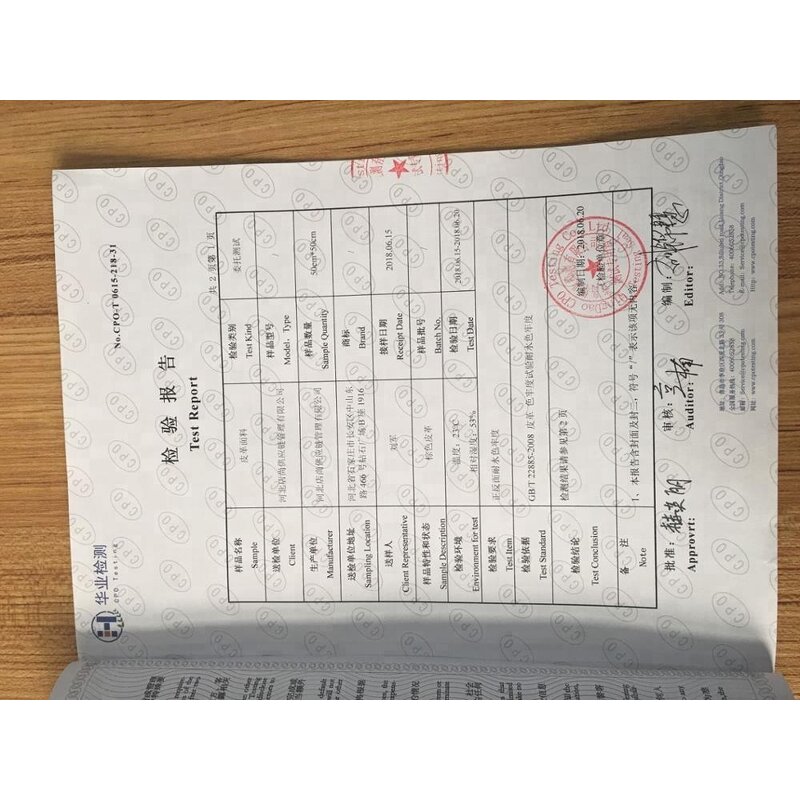 华业检测
CPO Testing
No.CPO-T 0615-218-31
检 验 报 告
Test Report
共 2 页 第 1 页
样品名称
Sample
皮革面料
检验类别
Test Kind
委托测试
送检单位
Client
河北店尚供应链管理有限公司
样品型号
Model、Type
/
生产单位
Manufacturer
河北店尚供应链管理有限公司
样品数量
Sample Quantity
50cm*50cm
送检单位地址
Sampling Location
河北省石家庄市长安区中山东
路 466 号钻石广场 B 座 1916
商标
Brand
/
送样人
Client Representative
刘军
接样日期
Receipt Date
2018.06.15
样品特性和状态
Sample Description
棕色皮革
样品批号
Batch No.
/
检验环境
Environment for test
温度：23℃
相对湿度：53%
检验日期
Test Date
2018.06.15-2018.06.20
检验要求
Test Item
正反面耐水色牢度
检验依据
Test Standard
GB/T 22885-2008 皮革 色牢度试验耐水色牢度
检验结论
Test Conclusion
检测结果请参见第 2 页
编制日期：2018.06.20
备 注
Note
1、本报告含封面及封二，符号“/”表示该项无内容。
批准：
Approvrt:
审核：
Auditor:
编制：
Editor:
全国服务热线：4006052858
Telephone: 4006052858
E-mail: Service@cpotesting.com
Http: www.cpotesting.com